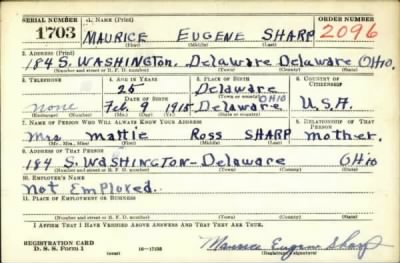 SERIAL NUMBER 1. NAME (Print) ORDER NUMBER
1703 MAURICE EUGENE SHARP 2096
(First) (Middle) (Last)
2. ADDRESS (Print)
184 S. WASHINGTON. Delaware Delaware OHIO.
(Number and street or R. F. D. number) (Town) (County) (State)
3. TELEPHONE 4. AGE IN YEARS 5. PLACE OF BIRTH 6. COUNTRY OF CITIZENSHIP
25 Delaware
DATE OF BIRTH (Town or county) OHIO
none Feb 9 1915 Delaware U.S.A.
(Exchange) (Number) (Mo.) (Day) (Yr.) (State or country)
7. NAME OF PERSON WHO WILL ALWAYS KNOW YOUR ADDRESS 8. RELATIONSHIP OF THAT PERSON
Mrs Mattie Ross SHARP Mother.
(Mr., Mrs., Miss) (First) (Middle) (Last)
9. ADDRESS OF THAT PERSON
184 S. WASHINGTON - Delaware OHio
(Number and street or R. F. D. number) (Town) (County) (State)
10. EMPLOYER'S NAME
Not Employed.
11. PLACE OF EMPLOYMENT OR BUSINESS
(Number and street or R. F. D. number) (Town) (County) (State)
I AFFIRM THAT I HAVE VERIFIED ABOVE ANSWERS AND THAT THEY ARE TRUE.
REGISTRATION CARD
D. S. S. Form 1 16—17105 Maurice Eugene Sharp
(Registrant's signature)